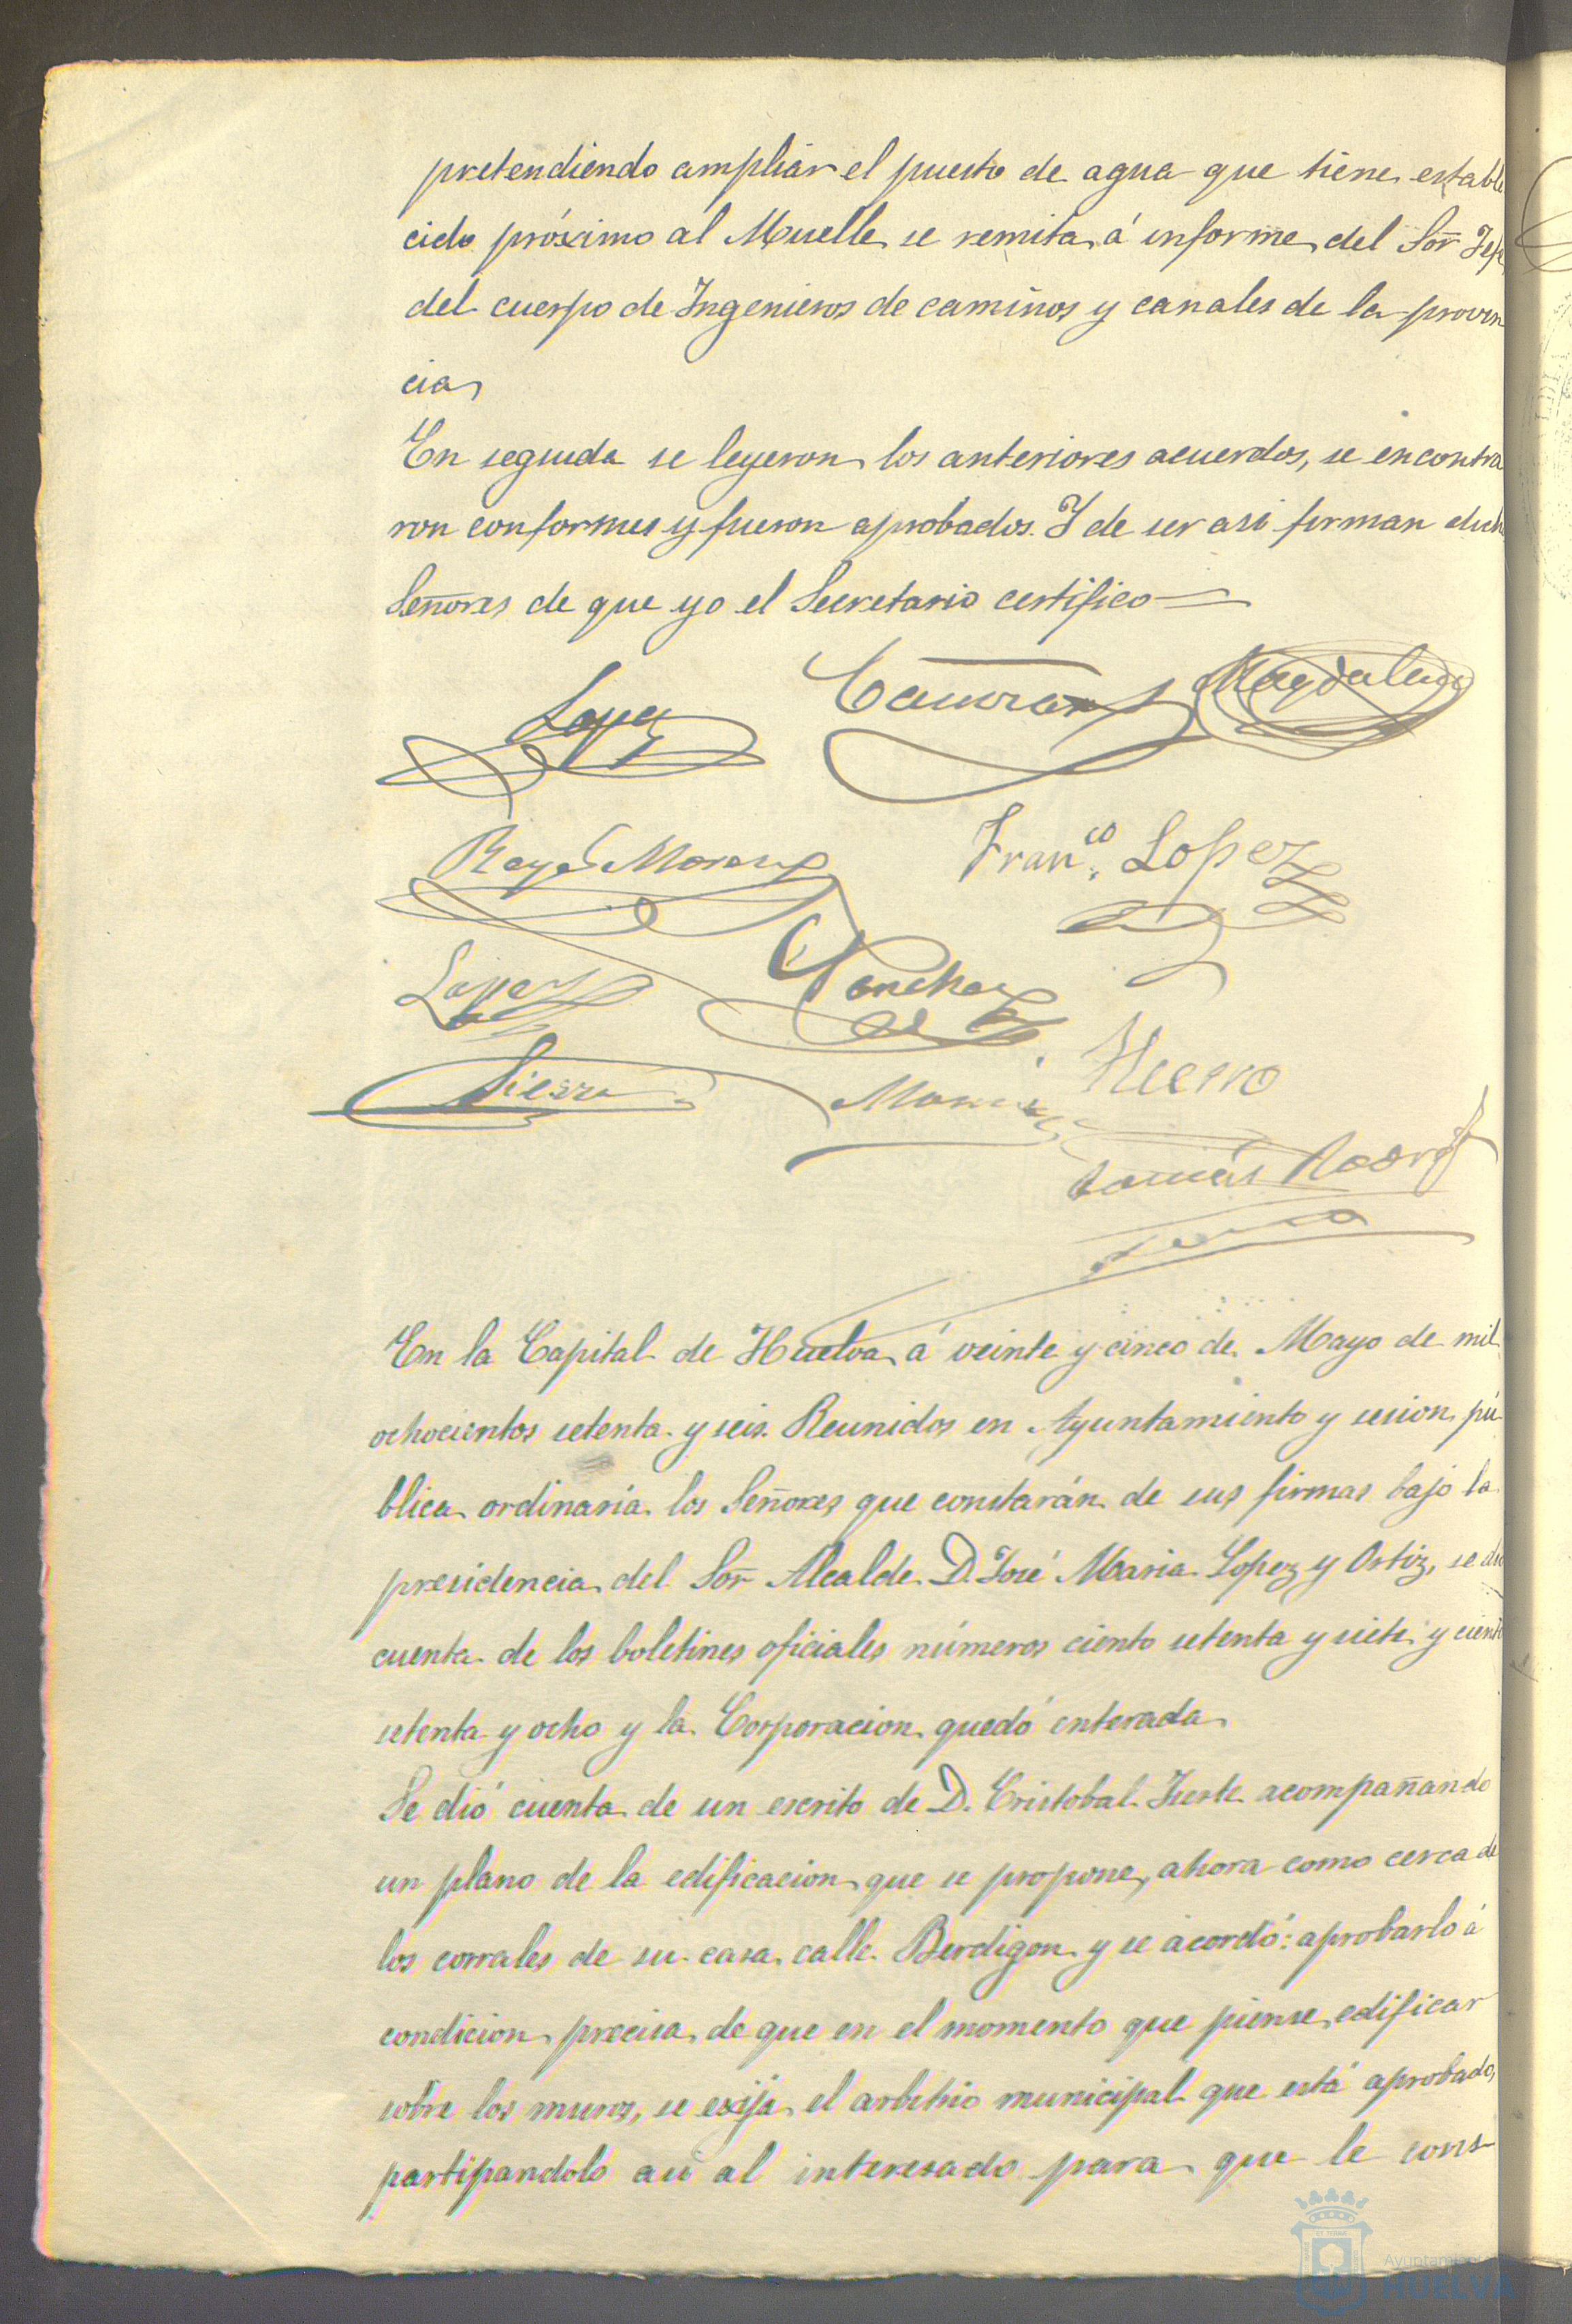 pretendiendo ampliar el puesto de agua que tiene estable
cido próximo al Muelle se remita á informe del Sor̄ Jefe
del cuerpo de Ingenieros de caminos y canales de la provin
cia
En seguida se leyeron los anteriores acuerdos, se encontra
ron conformes y fueron aprobados. Y de ser asi firman dich
Señores de que yo el Secretario certifico=
Lopez
Magdalena
Reyes Moreno
Fran.co Lopez
Lopez
Sanchez
Sierra
Hierro
Tomás Rodrig
En la Capital de Huelva á veinte y cinco de Mayo de mil
ochocientos setenta y seis. Reunidos en Ayuntamiento y sesion pú
blica ordinaria los Señores que constarán de sus firmas bajo la
presidencia del Sor̄ Alcalde D. José Maria Lopez y Ortiz, se dió
cuenta de los boletines oficiales números ciento setenta y siete y ciento
setenta y ocho y la Corporacion quedó enterada
Se dió cuenta de un escrito de D. Cristobal acompañando
un plano de la edificacion que se propone, ahora como cerca de
los corrales de su casa calle Berdigon y se acordó: aprobarlo á
condicion precisa de que en el momento que piense edificar
sobre los muros, se exija el arbitrio municipal que está aprobado,
partipandolo asi al interesado para que le cons
Ayuntamiento
HUELVA